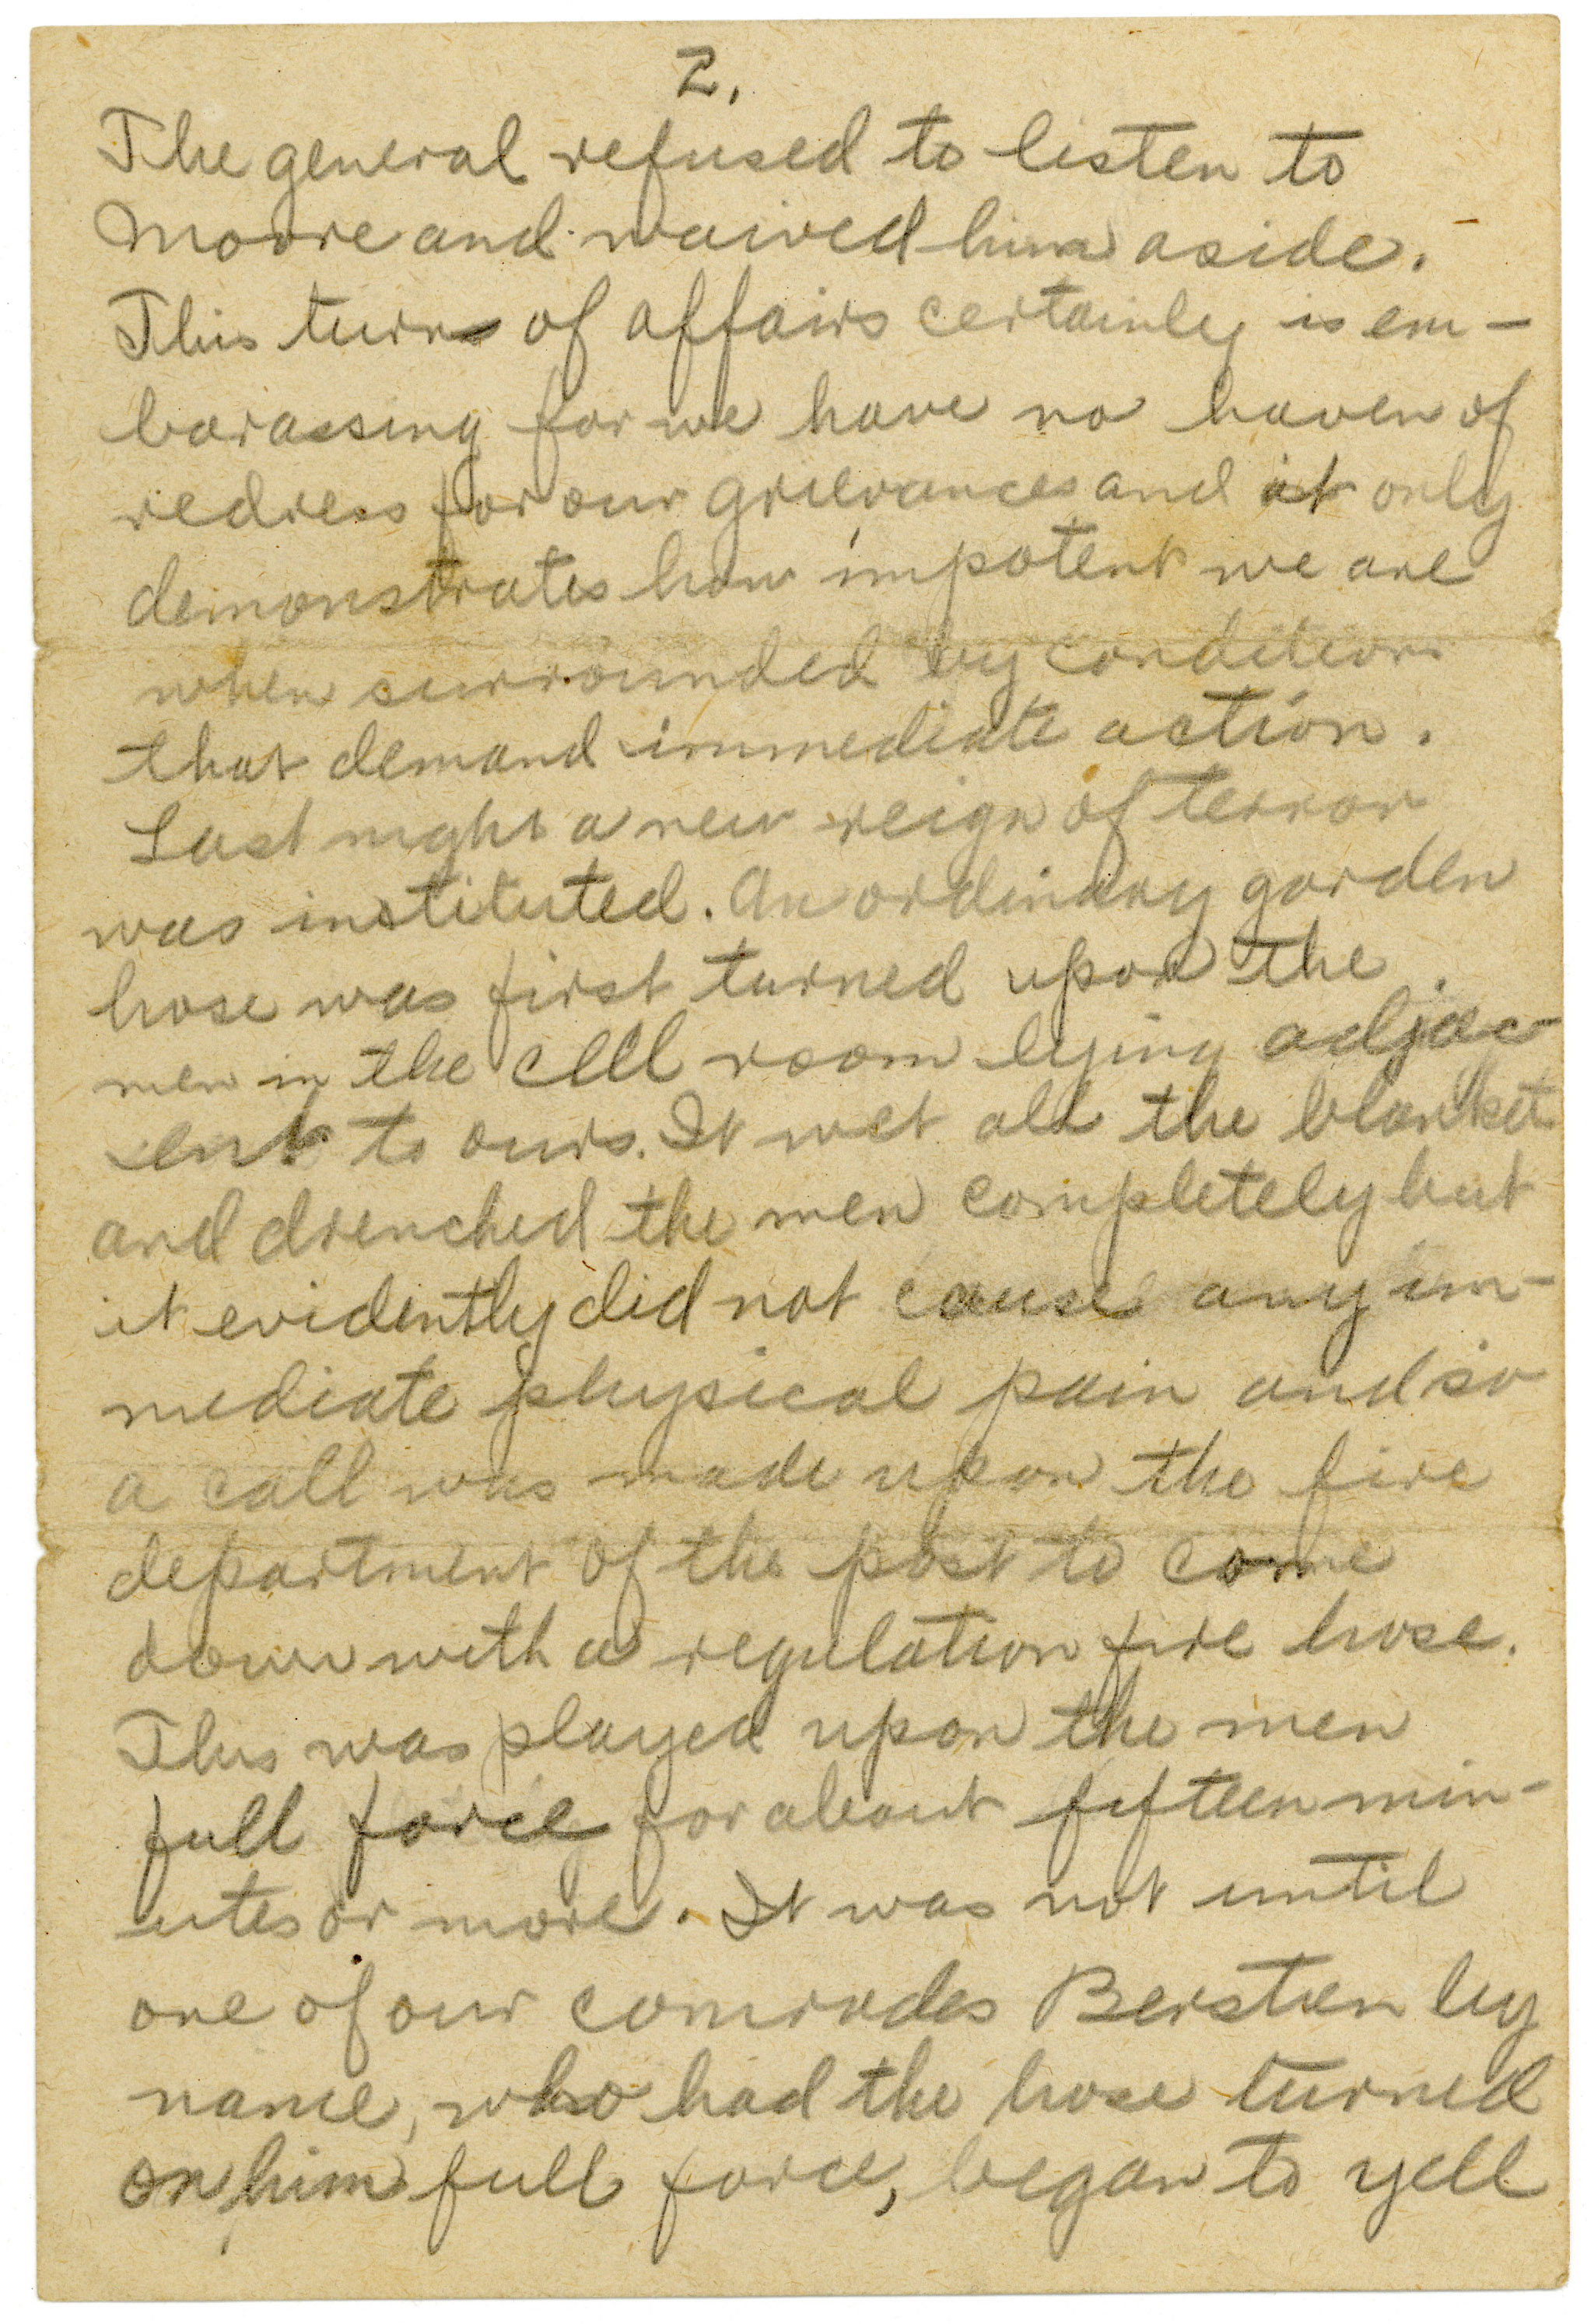 2.
The general refused to listen to
Moore and waived him aside.
This turn of affairs certainly is em-
barassing for we have no haven of
redress for our grievances and it only
demonstrates how impotent we are
when surrounded by conditions
that demand immediate action.
Last night a new reign of terror
was instituted. An ordinary garden
hose was first turned upon the
men in the cell room lying adjac-
ent to ours. It wet all the blankets
and drenched the men completely but
it evidently did not cause any im-
mediate physical pain and so
a call was made upon the fire
department of the post to come
down with a regulation fire hose.
This was played upon the men
full force for about fifteen min-
utes or more. It was not until
one of our comrades Berstien by
name, who had the hose turned
on him full force, began to yell